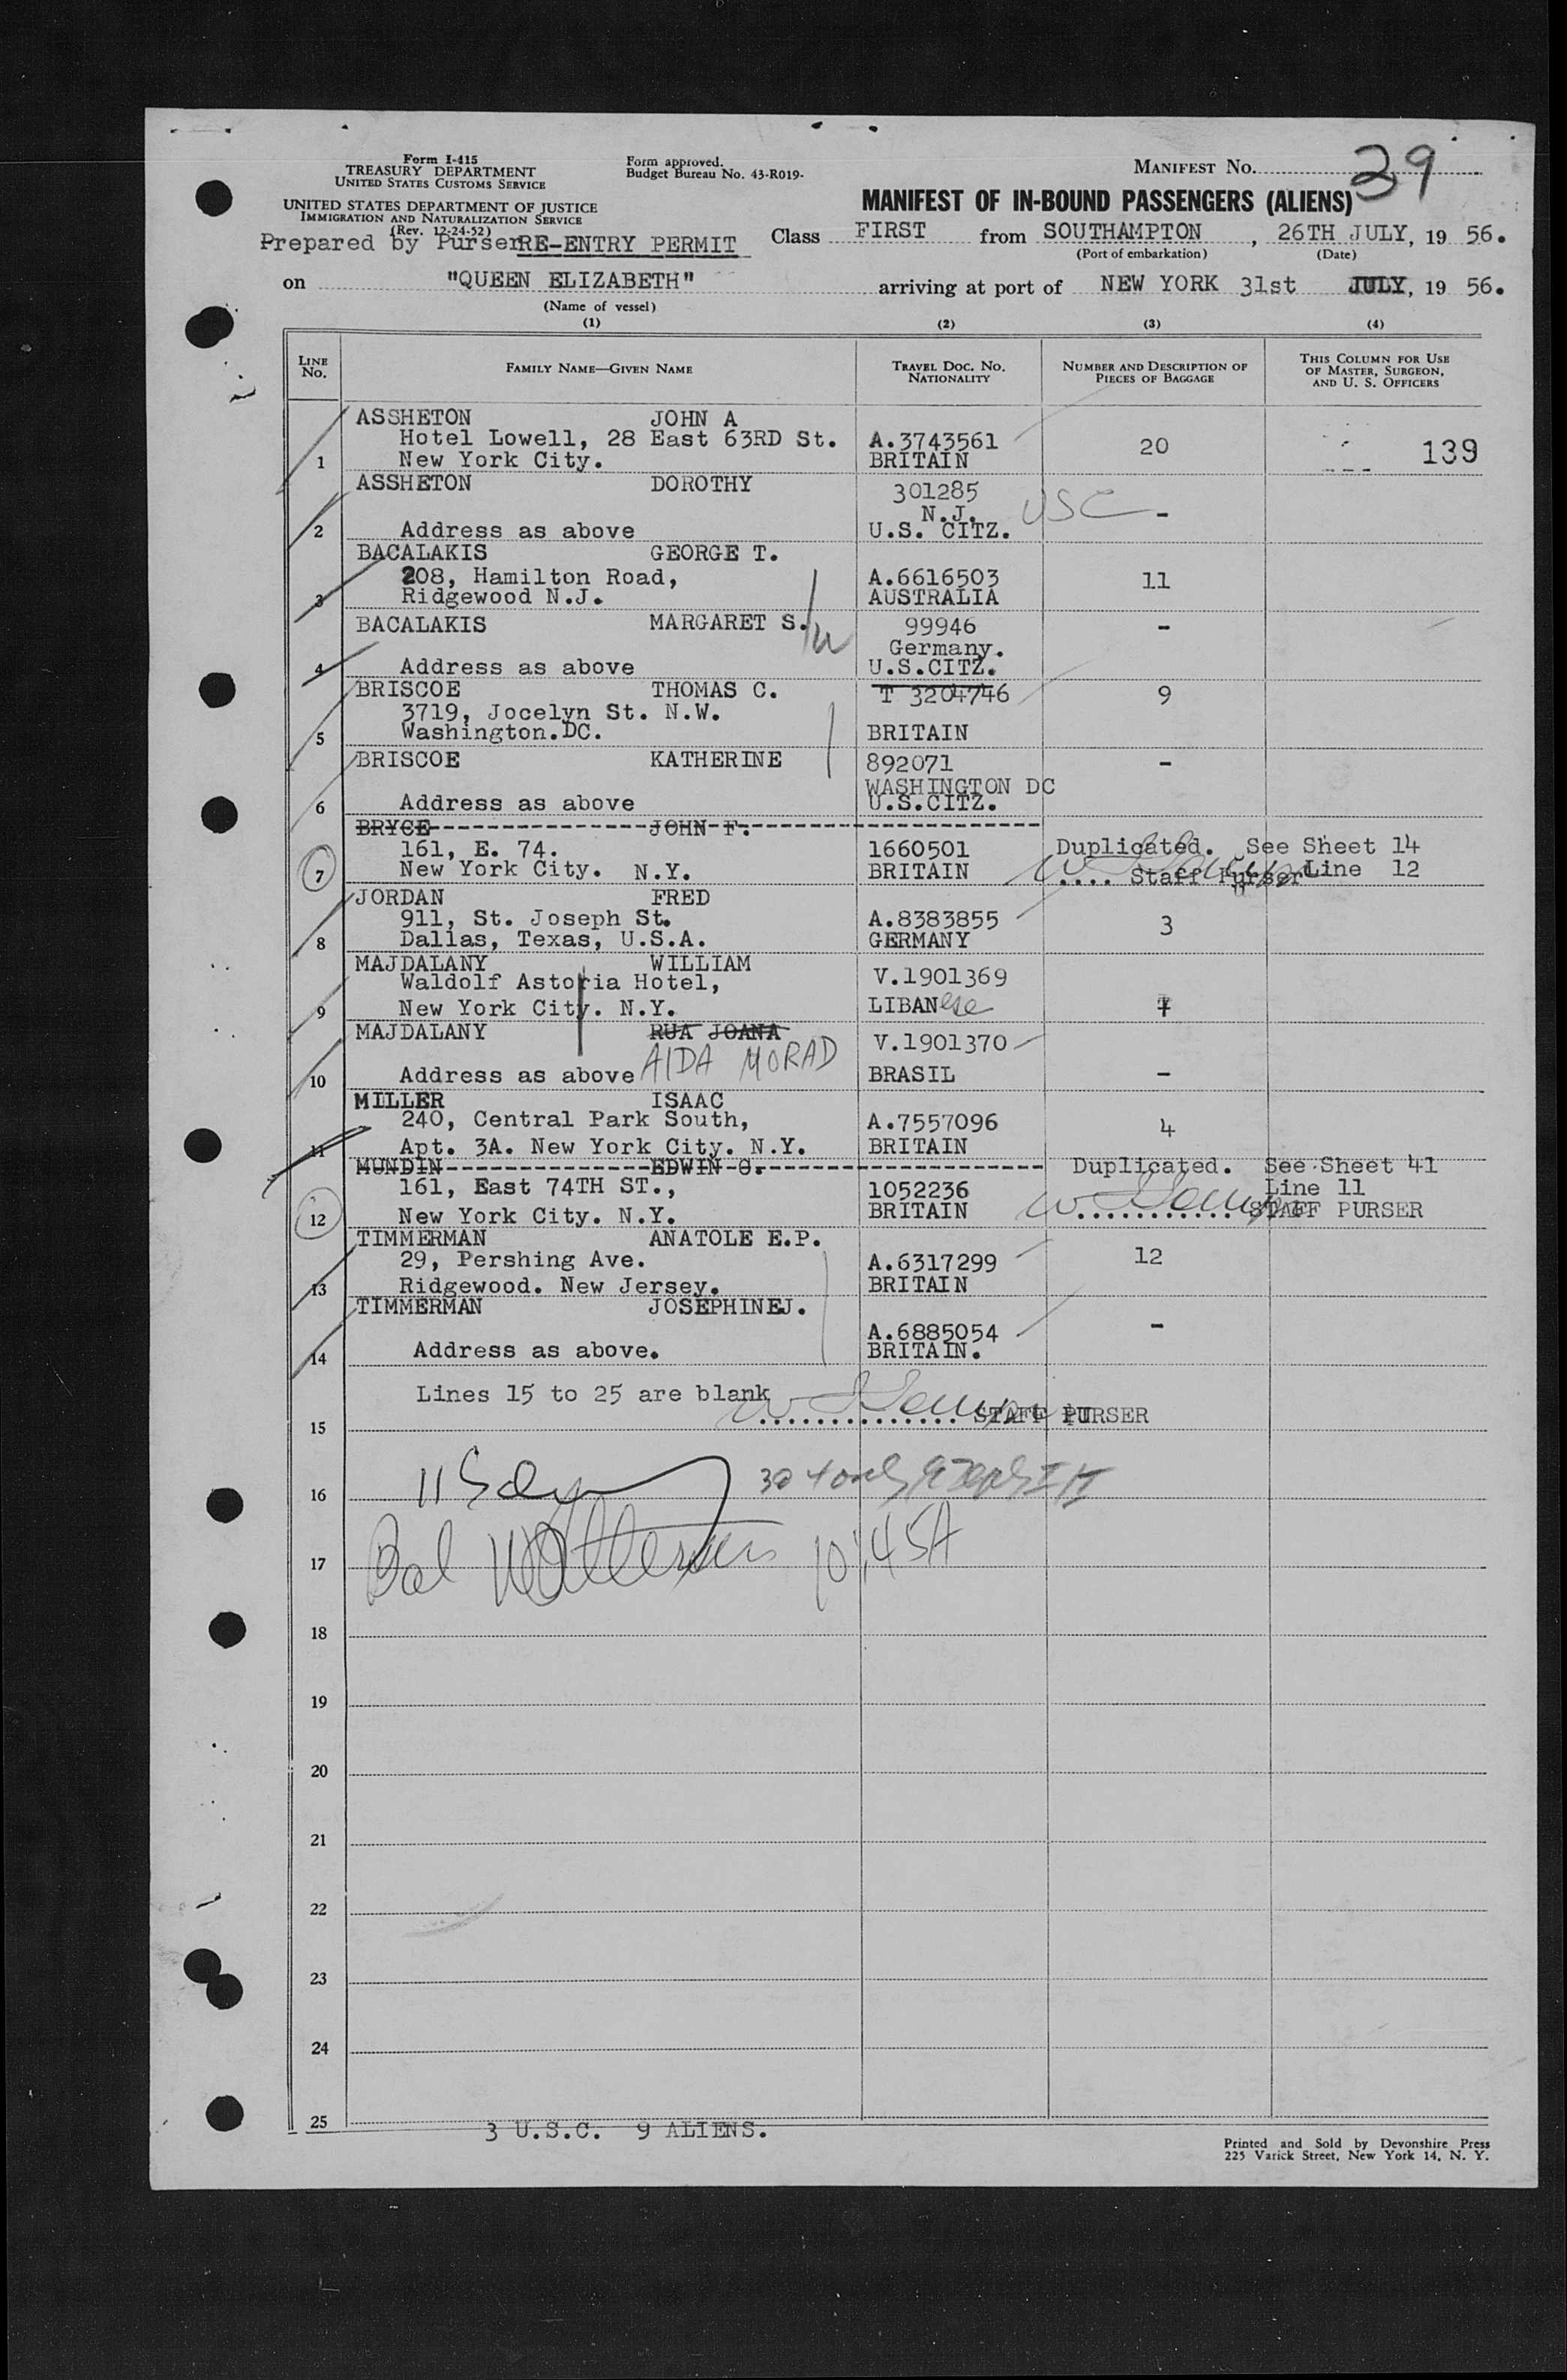 Form I-415
TREASURY DEPARTMENT
UNITED STATES CUSTOMS SERVICE
UNITED STATES DEPARTMENT OF JUSTICE
IMMIGRATION AND NATURALIZATION SERVICE
(Rev. 12-24-52)
Form approved.
Budget Bureau No. 43-R019-
MANIFEST NO. 39
MANIFEST OF IN-BOUND PASSENGERS (ALIENS)
Prepared by Purser RE-ENTRY PERMIT Class FIRST from SOUTHAMPTON, 26TH JULY, 19 56.
(Port of embarkation) (Date)
on "QUEEN ELIZABETH" arriving at port of NEW YORK 31st JULY, 19 56.
(Name of vessel)
(1) (2) (3) (4)
LINE NO. FAMILY NAME—GIVEN NAME TRAVEL DOC. NO. NATIONALITY NUMBER AND DESCRIPTION OF PIECES OF BAGGAGE THIS COLUMN FOR USE OF MASTER, SURGEON, AND U. S. OFFICERS
ASSHETON JOHN A
Hotel Lowell, 28 East 63RD St. A.3743561 20 139
1 New York City. BRITAIN
ASSHETON DOROTHY 301285
N.J. USC -
2 Address as above U.S. CITZ.
BACALAKIS GEORGE T.
208, Hamilton Road, A.6616503 11
3 Ridgewood N.J. AUSTRALIA
BACALAKIS MARGARET S. 99946 -
Germany.
4 Address as above U.S.CITZ.
BRISCOE THOMAS C. T 3204746 9
3719, Jocelyn St. N.W.
5 Washington.DC. BRITAIN
BRISCOE KATHERINE 892071 -
WASHINGTON DC
6 Address as above U.S.CITZ.
BRYCE---------------JOHN-F.--------------------
161, E. 74. 1660501 Duplicated. See Sheet 14
7 New York City. N.Y. BRITAIN .... Staff Purser Line 12
JORDAN FRED
911, St. Joseph St. A.8383855 3
8 Dallas, Texas, U.S.A. GERMANY
MAJDALANY WILLIAM
Waldolf Astoria Hotel, V.1901369
9 New York City. N.Y. LIBANese 7
MAJDALANY RUA JOANA V.1901370
10 Address as above AIDA MORAD BRASIL -
MILLER ISAAC
240, Central Park South, A.7557096 4
11 Apt. 3A. New York City. N.Y. BRITAIN
MUNDIN--------------EDWIN-O.------------------- Duplicated. See Sheet 41
161, East 74TH ST., 1052236 Line 11
12 New York City. N.Y. BRITAIN ............ STAFF PURSER
TIMMERMAN ANATOLE E.P. 12
29, Pershing Ave. A.6317299
13 Ridgewood. New Jersey. BRITAIN
TIMMERMAN JOSEPHINEJ.
A.6885054 -
14 Address as above. BRITAIN.
Lines 15 to 25 are blank
15 ............... STAFF PURSER
16
17 Bal 10:45A
18
19
20
21
22
23
24
25
3 U.S.C. 9 ALIENS.
Printed and Sold by Devonshire Press
225 Varick Street, New York 14, N. Y.